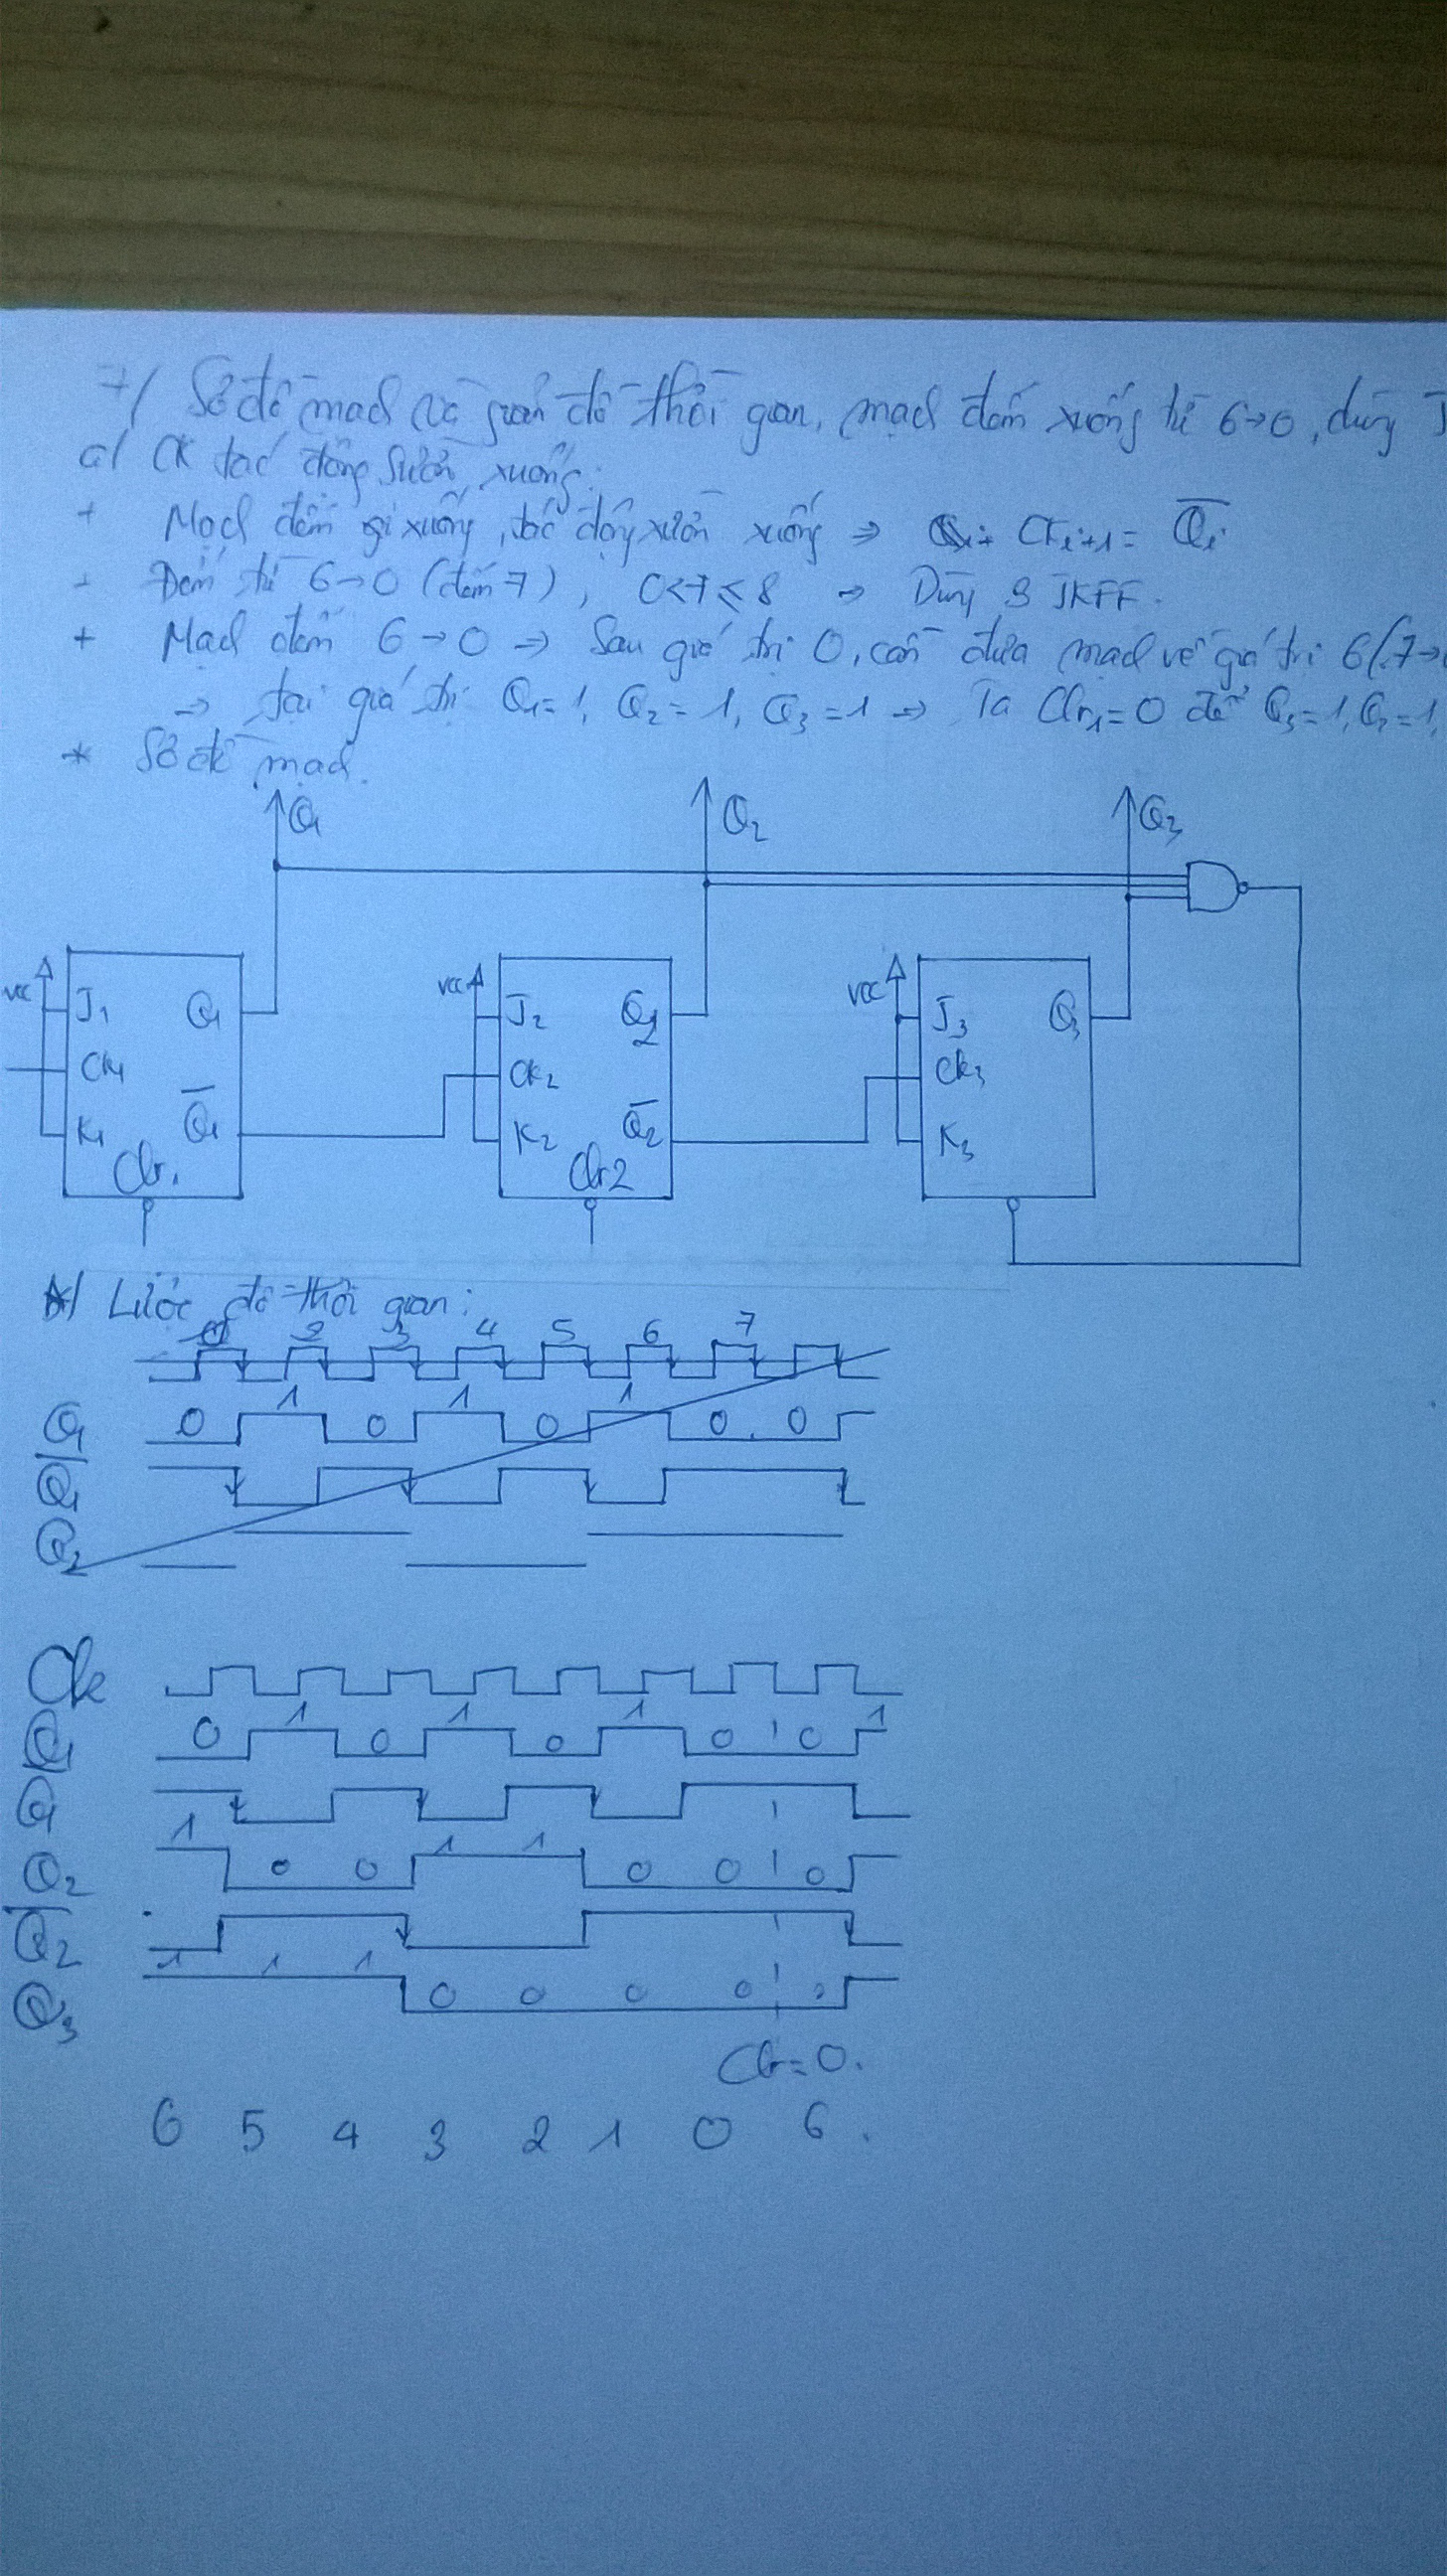 7/ Sơ đồ mạch và giản đồ thời gian, mạch đếm xuống từ 6→0, dùng J
a/ CK tác động sườn xuống.
+ Mạch đếm xuống, tác động sườn xuống ⇒ CKi+1 = Q̅i
+ Đếm từ 6→0 (đếm 7), 0<7≤8 ⇒ Dùng 3 JKFF.
+ Mạch đếm 6→0 ⇒ Sau giá trị 0, cần đưa mạch về giá trị 6 (7→
⇒ tại giá trị Q1=1, Q2=1, Q3=1 ⇒ Ta Clr1=0 để Q3=1, Q2=1,
* Sơ đồ mạch.
Q1 Q2 Q3
VCC J1 Q1 VCC J2 Q2 VCC J3 Q3
CK1 CK2 CK3
K1 Q̅1 K2 Q̅2 K3
Clr1 Clr2
*/ Lược đồ thời gian:
2 3 4 5 6 7
Q1 0 1 0 1 0 1 0 0
Q̅1
Q2
Ck
Q1 0 1 0 1 0 1 0 0 1
Q̅1
Q2 1 0 0 1 1 0 0 0
Q̅2
Q3 1 1 1 0 0 0 0 0
Clr=0.
6 5 4 3 2 1 0 6.